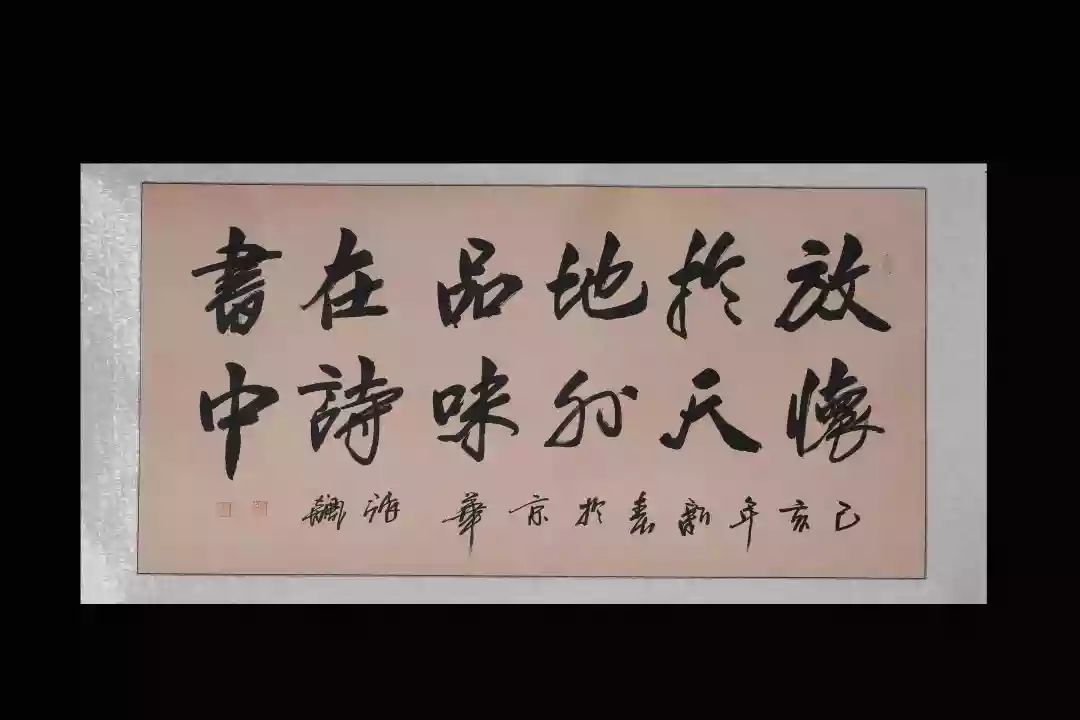 放懷
於天
地外
品味
在詩
書中
己亥年新春於京華